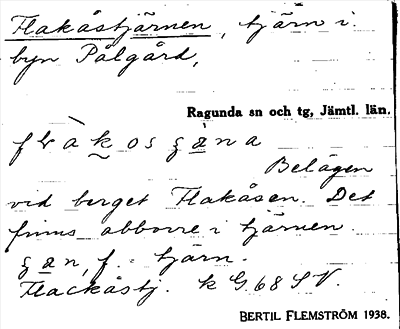 Flakåstjärnen, tjärn i
byn Pålgård,
Ragunda sn och tg, Jämtl. län.
Belägen
vid berget Flakåsen. Det
finns abborre i tjärnen
f. tjärn.
Flackåstj. k G. 68 S V.
BERTIL FLEMSTRÖM 1938.